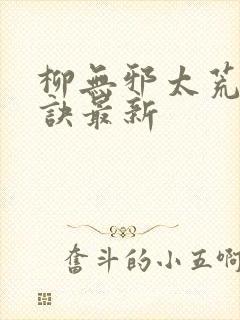 柳無邪太荒
訣最新
奮斗的小五啊